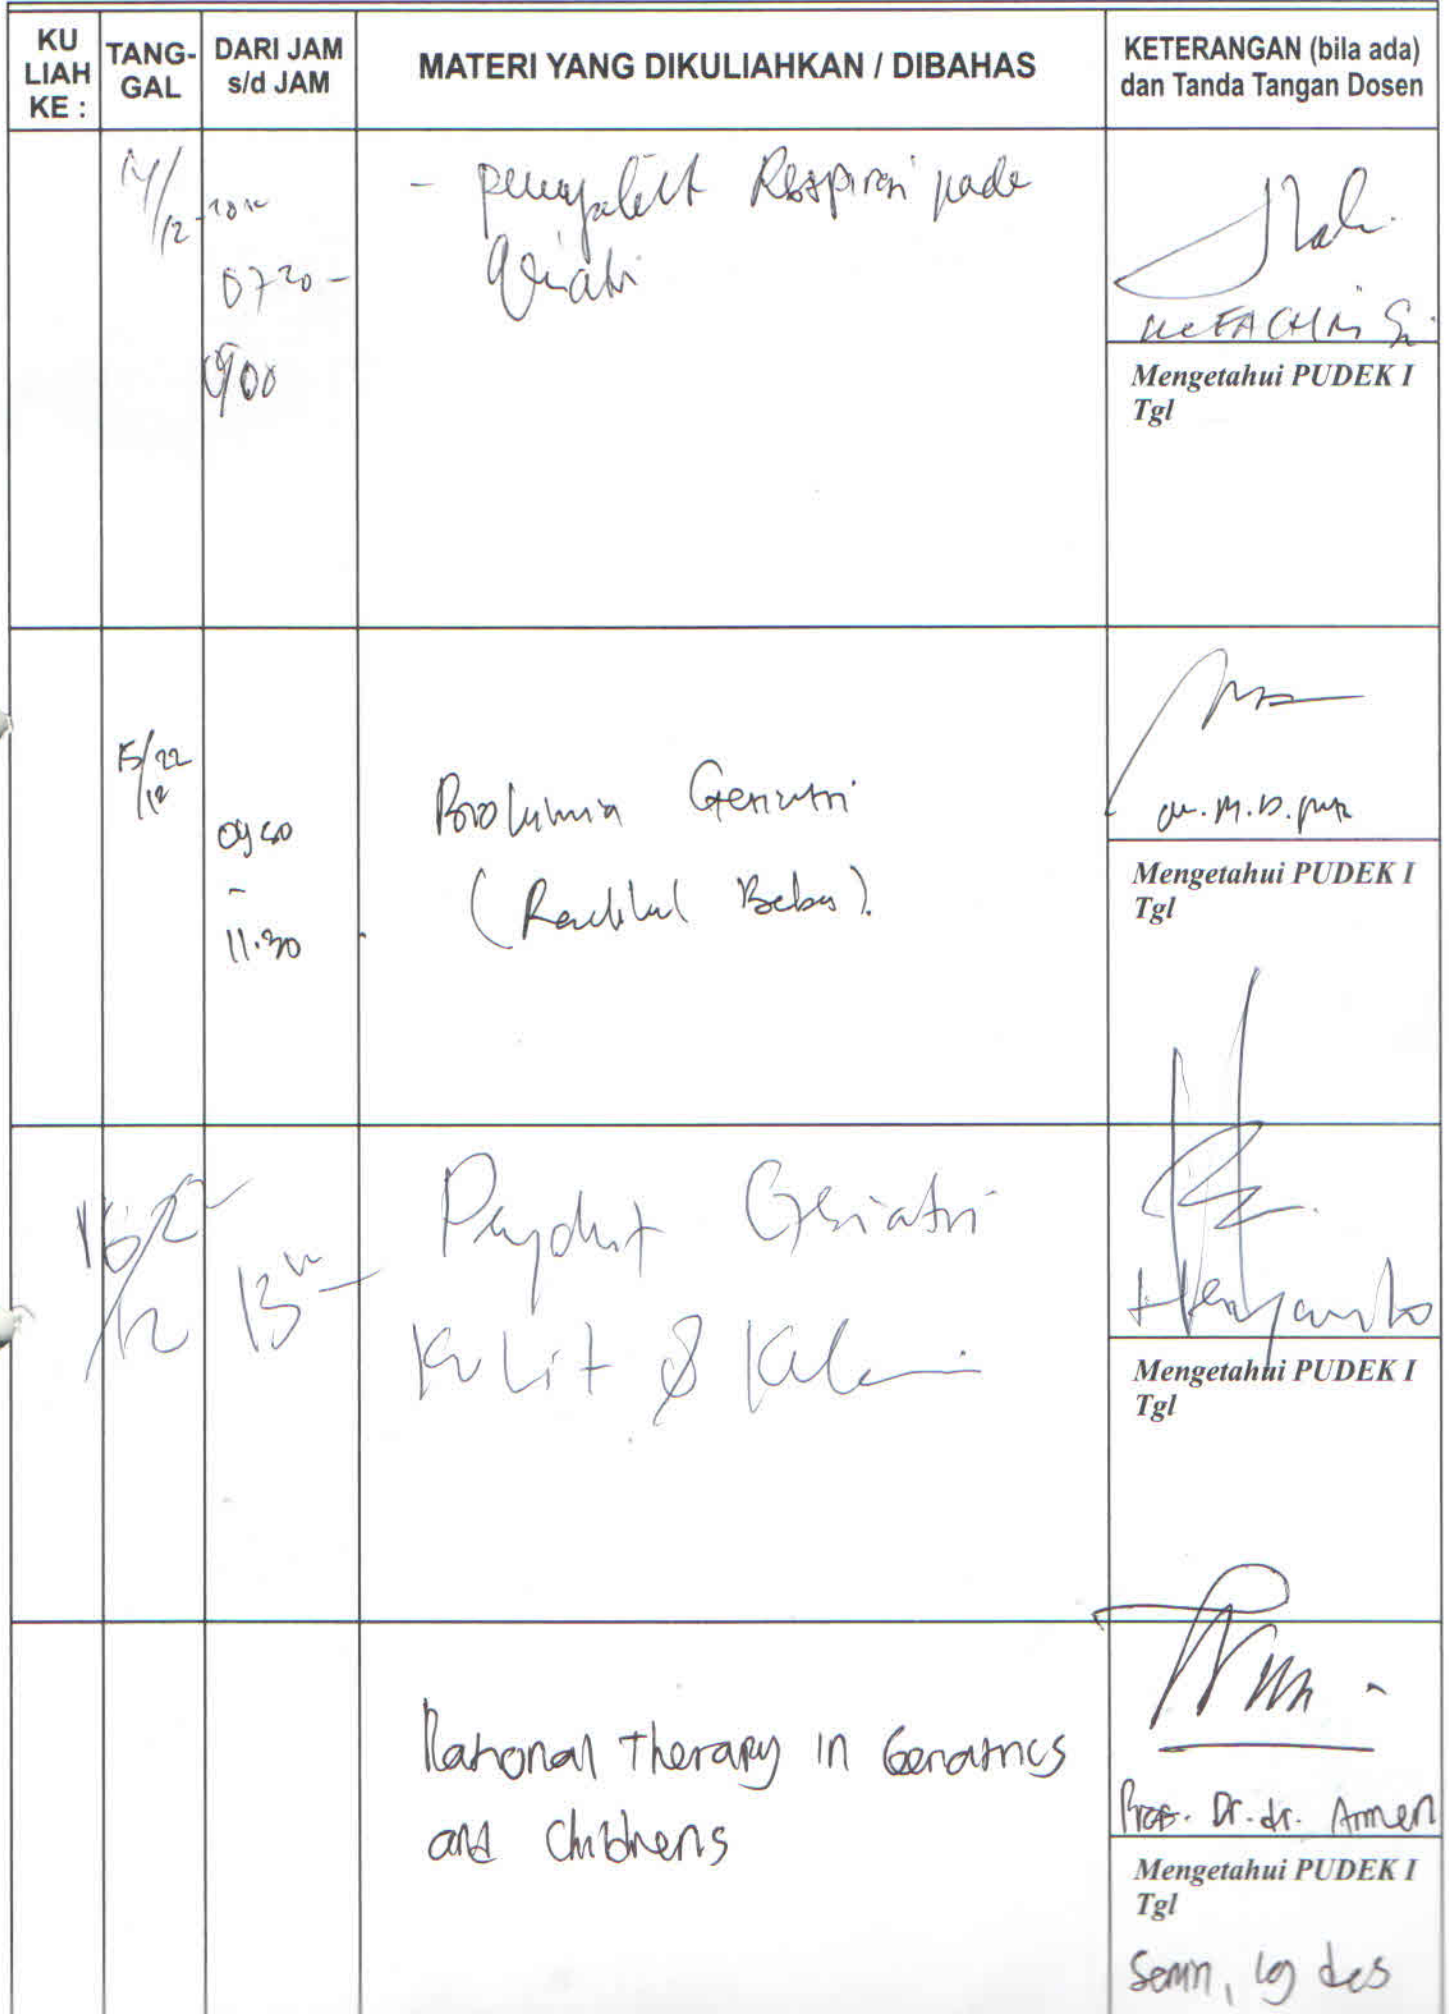 KU
LIAH
KE :
TANG-
GAL
DARI JAM
s/d JAM
MATERI YANG DIKULIAHKAN / DIBAHAS
KETERANGAN (bila ada)
dan Tanda Tangan Dosen
14/12
0720 -
0900
- penyakit Respirasi pada
Geriatri
Mengetahui PUDEK I
Tgl
15/22
12
0940
-
11.30
Biokimia Geriatri
(Radikal Bebas).
Mengetahui PUDEK I
Tgl
16/22
12
13
Penyakit Geriatri
Kulit & Kelamin
Heryanto
Mengetahui PUDEK I
Tgl
Rational Therapy in Geriatrics
and Childrens
Prof. Dr. dr. Armen
Mengetahui PUDEK I
Tgl
Senin, 19 des